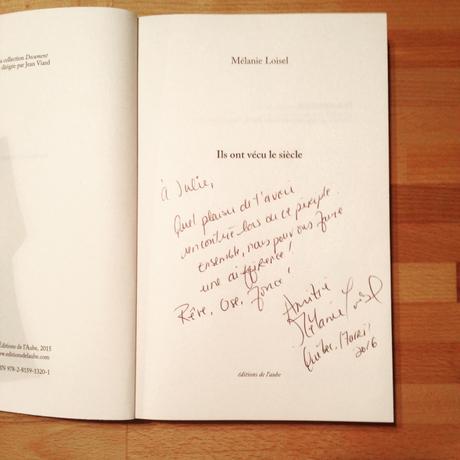 collection Document
dirigée par Jean Viard
Éditions de l'Aube, 2015
www.editionsdelaube.com
978-2-8159-1320-1
Mélanie Loisel
Ils ont vécu le siècle
à Julie,
Quel plaisir de t'avoir
rencontrée lors de ce périple.
ensemble, nous pouvons faire
une différence!
Rêve, Ose, Fonce!
Amitié
Mélanie Loisel
Québec,
2016
éditions de l'aube